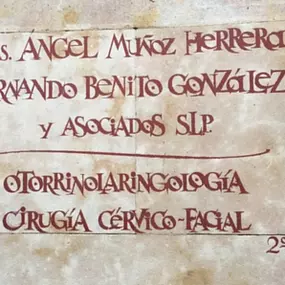 s. Ángel Muñoz Herrera
rnando Benito González
y Asociados S.L.P.
Otorrinolaringología
Cirugía Cérvico-Facial
2º